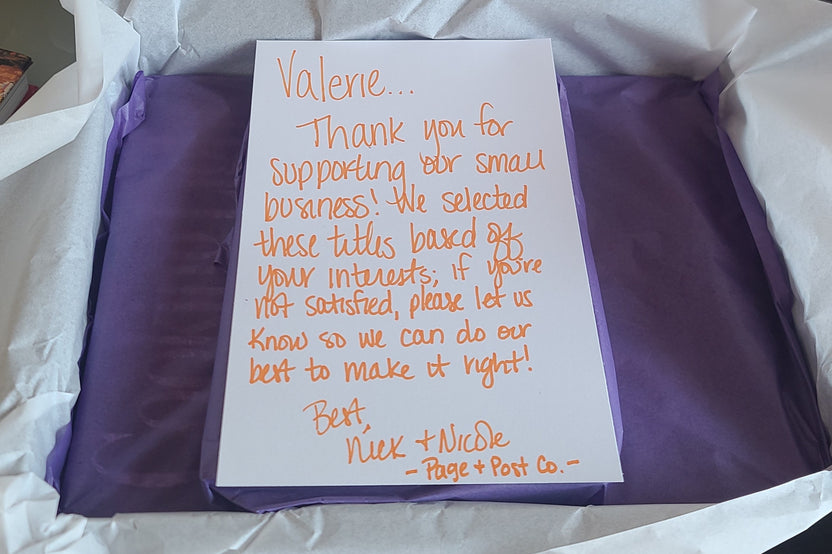 Valerie...
Thank you for
supporting our small
business! We selected
these titles based off
your interests; if you're
not satisfied, please let us
know so we can do our
best to make it right!
Best,
Nick + Nicole
- Page + Post Co. -